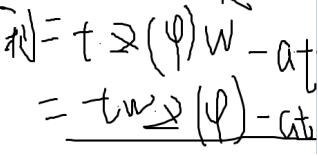 利 = t Σ(φ)w - at
= tw Σ(φ) - at